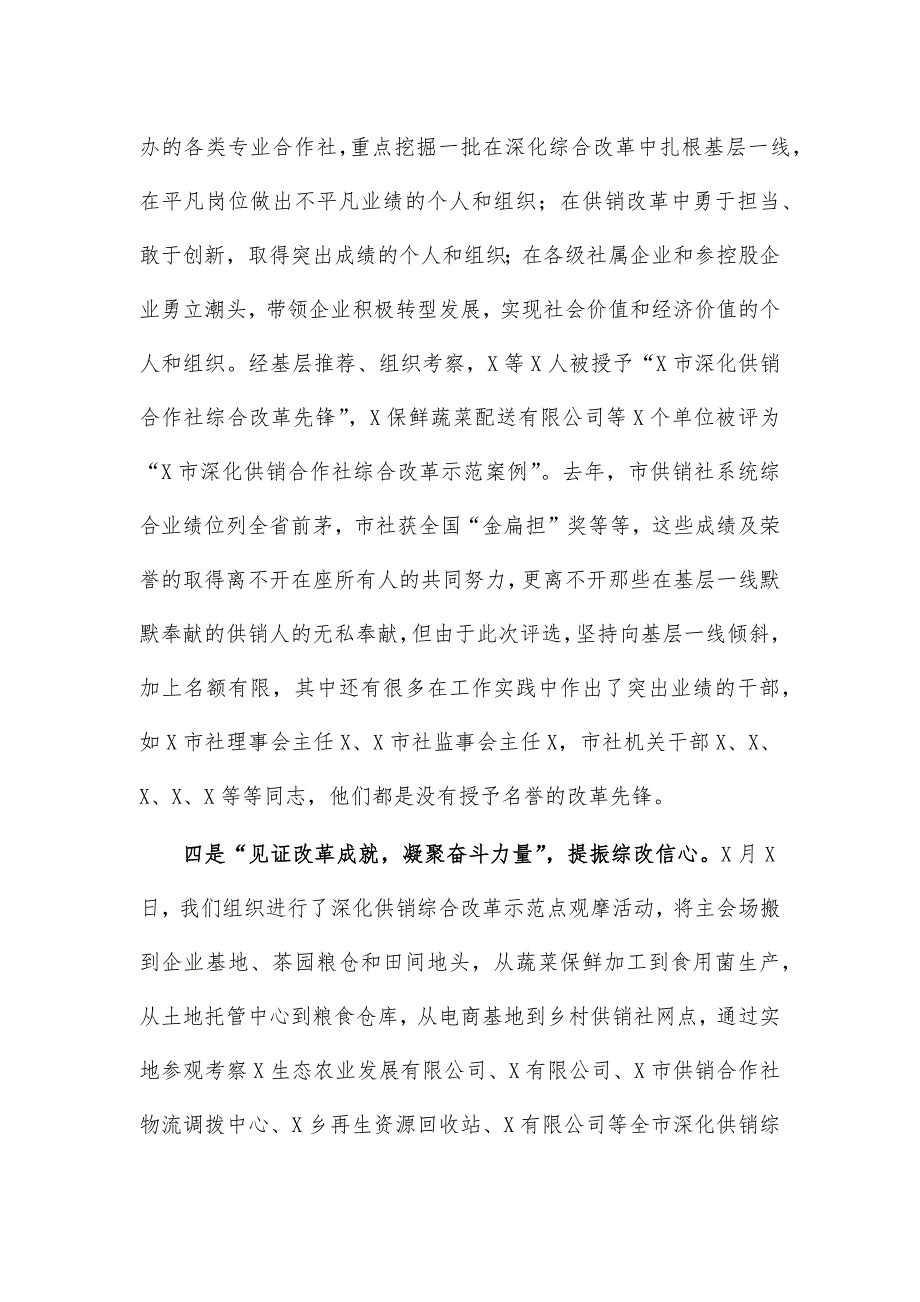 办的各类专业合作社，重点挖掘一批在深化综合改革中扎根基层一线，
在平凡岗位做出不平凡业绩的个人和组织；在供销改革中勇于担当、
敢于创新，取得突出成绩的个人和组织；在各级社属企业和参控股企
业勇立潮头，带领企业积极转型发展，实现社会价值和经济价值的个
人和组织。经基层推荐、组织考察，X 等 X 人被授予“X 市深化供销
合作社综合改革先锋”，X 保鲜蔬菜配送有限公司等 X 个单位被评为
“X 市深化供销合作社综合改革示范案例”。去年，市供销社系统综
合业绩位列全省前茅，市社获全国“金扁担”奖等等，这些成绩及荣
誉的取得离不开在座所有人的共同努力，更离不开那些在基层一线默
默奉献的供销人的无私奉献，但由于此次评选，坚持向基层一线倾斜，
加上名额有限，其中还有很多在工作实践中作出了突出业绩的干部，
如 X 市社理事会主任 X、X 市社监事会主任 X，市社机关干部 X、X、
X、X、X 等等同志，他们都是没有授予名誉的改革先锋。
四是“见证改革成就，凝聚奋斗力量”，提振综改信心。X 月 X
日，我们组织进行了深化供销综合改革示范点观摩活动，将主会场搬
到企业基地、茶园粮仓和田间地头，从蔬菜保鲜加工到食用菌生产，
从土地托管中心到粮食仓库，从电商基地到乡村供销社网点，通过实
地参观考察 X 生态农业发展有限公司、X 有限公司、X 市供销合作社
物流调拨中心、X 乡再生资源回收站、X 有限公司等全市深化供销综